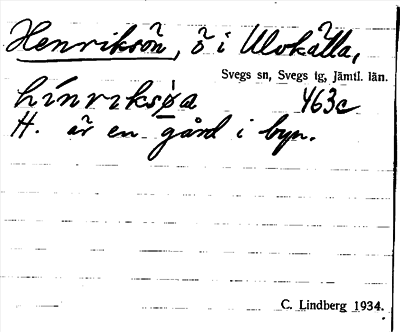 Henriksön, ö i Ulvkälla,
Svegs sn, Svegs tg, Jämtl. län.
hínriksøa 463c
H. är en gård i byn.
C. Lindberg 1934.